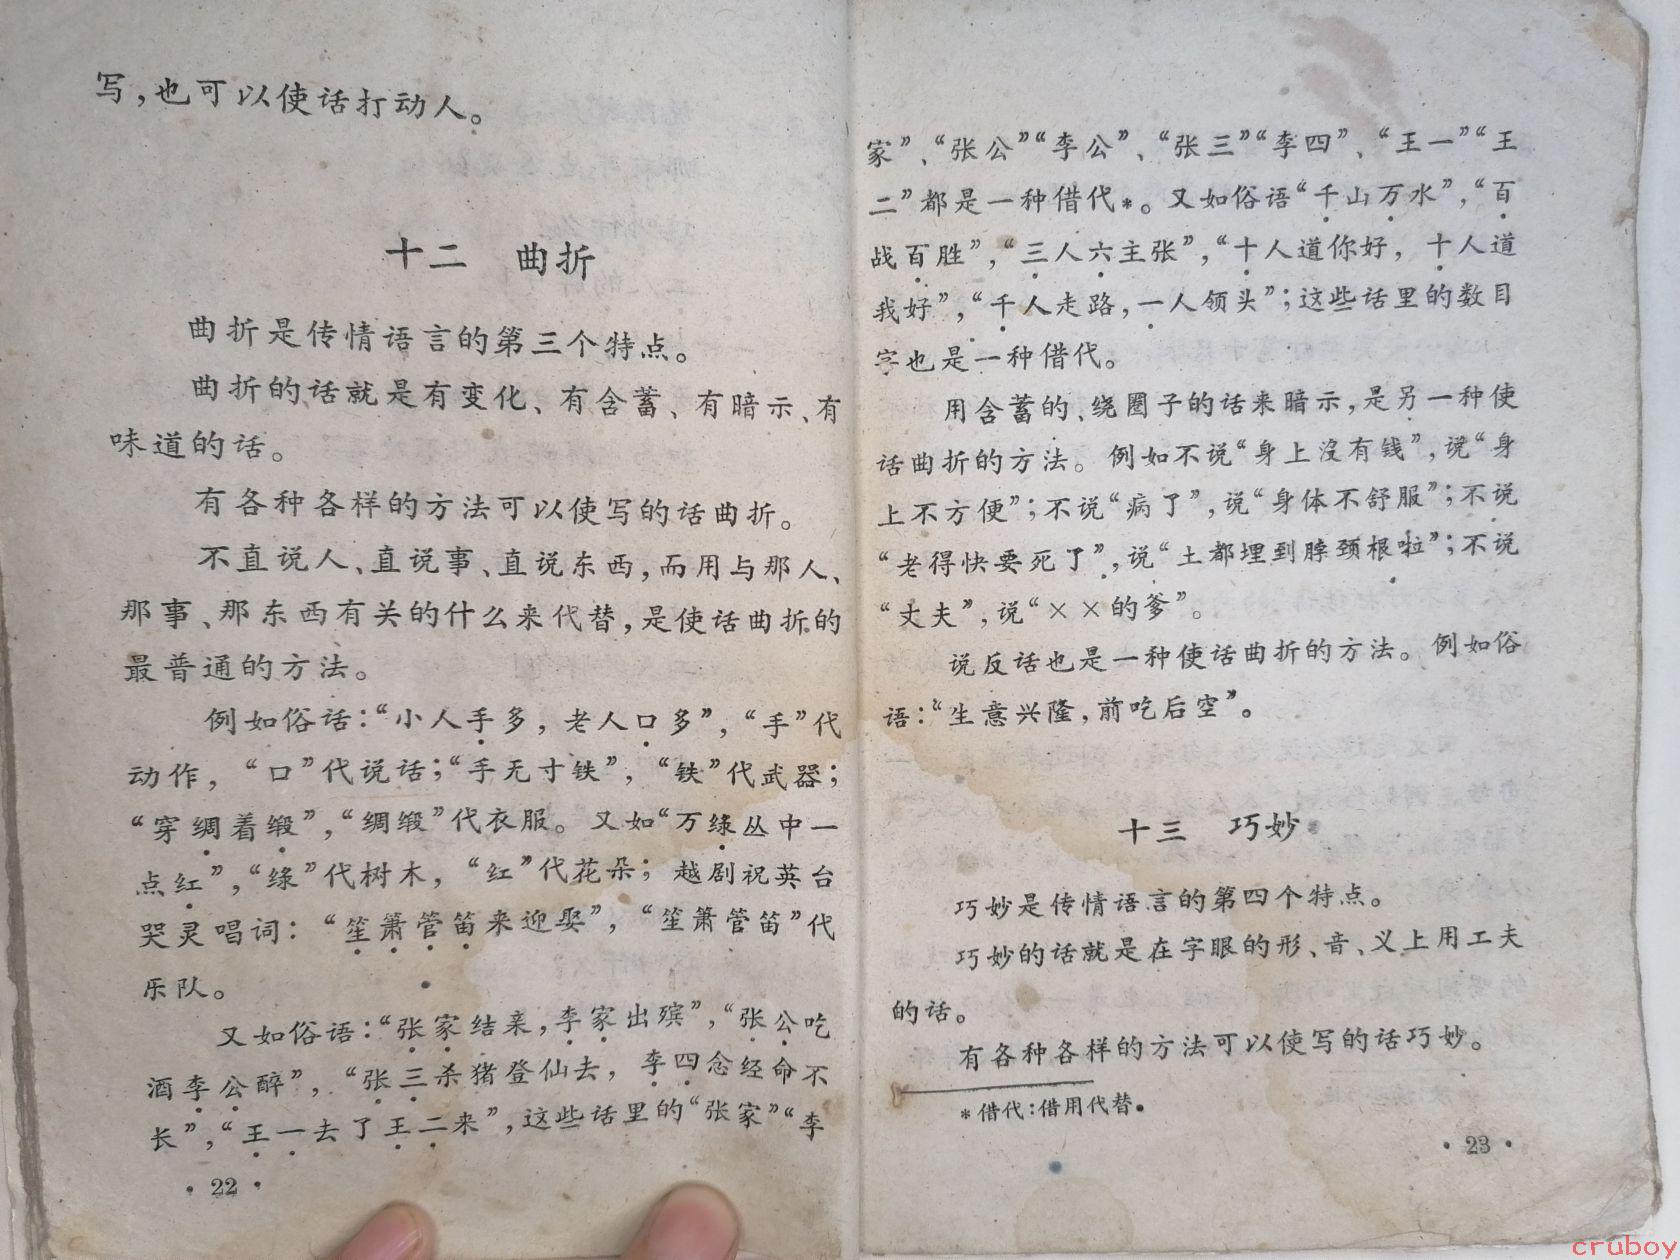 写,也可以使话打动人。
十二 曲折
曲折是传情语言的第三个特点。
曲折的话就是有变化、有含蓄、有暗示、有
味道的话。
有各种各样的方法可以使写的话曲折。
不直说人、直说事、直说东西,而用与那人、
那事、那东西有关的什么来代替,是使话曲折的
最普通的方法。
例如俗话:“小人手多,老人口多”,“手”代
动作,“口”代说话;“手无寸铁”,“铁”代武器;
“穿绸着缎”,“绸缎”代衣服。又如“万绿丛中一
点红”,“绿”代树木,“红”代花朵;越剧祝英台
哭灵唱词:“笙箫管笛来迎娶”,“笙箫管笛”代
乐队。
又如俗语:“张家结亲,李家出殡”,“张公吃
酒李公醉”,“张三杀猪登仙去,李四念经命不
长”,“王一去了王二来”,这些话里的“张家”“李
·22·
家”、“张公”“李公”、“张三”“李四”、“王一”“王
二”都是一种借代*。又如俗语“千山万水”,“百
战百胜”,“三人六主张”,“十人道你好,十人道
我好”,“千人走路,一人领头”;这些话里的数目
字也是一种借代。
用含蓄的、绕圈子的话来暗示,是另一种使
话曲折的方法。例如不说“身上沒有钱”,说“身
上不方便”;不说“病了”,说“身体不舒服”;不说
“老得快要死了”,说“土都埋到脖颈根啦”;不说
“丈夫”,说“××的爹”。
说反话也是一种使话曲折的方法。例如俗
语:“生意兴隆,前吃后空”。
十三 巧妙
巧妙是传情语言的第四个特点。
巧妙的话就是在字眼的形、音、义上用工夫
的话。
有各种各样的方法可以使写的话巧妙。
*借代:借用代替。
·23·
cruboy